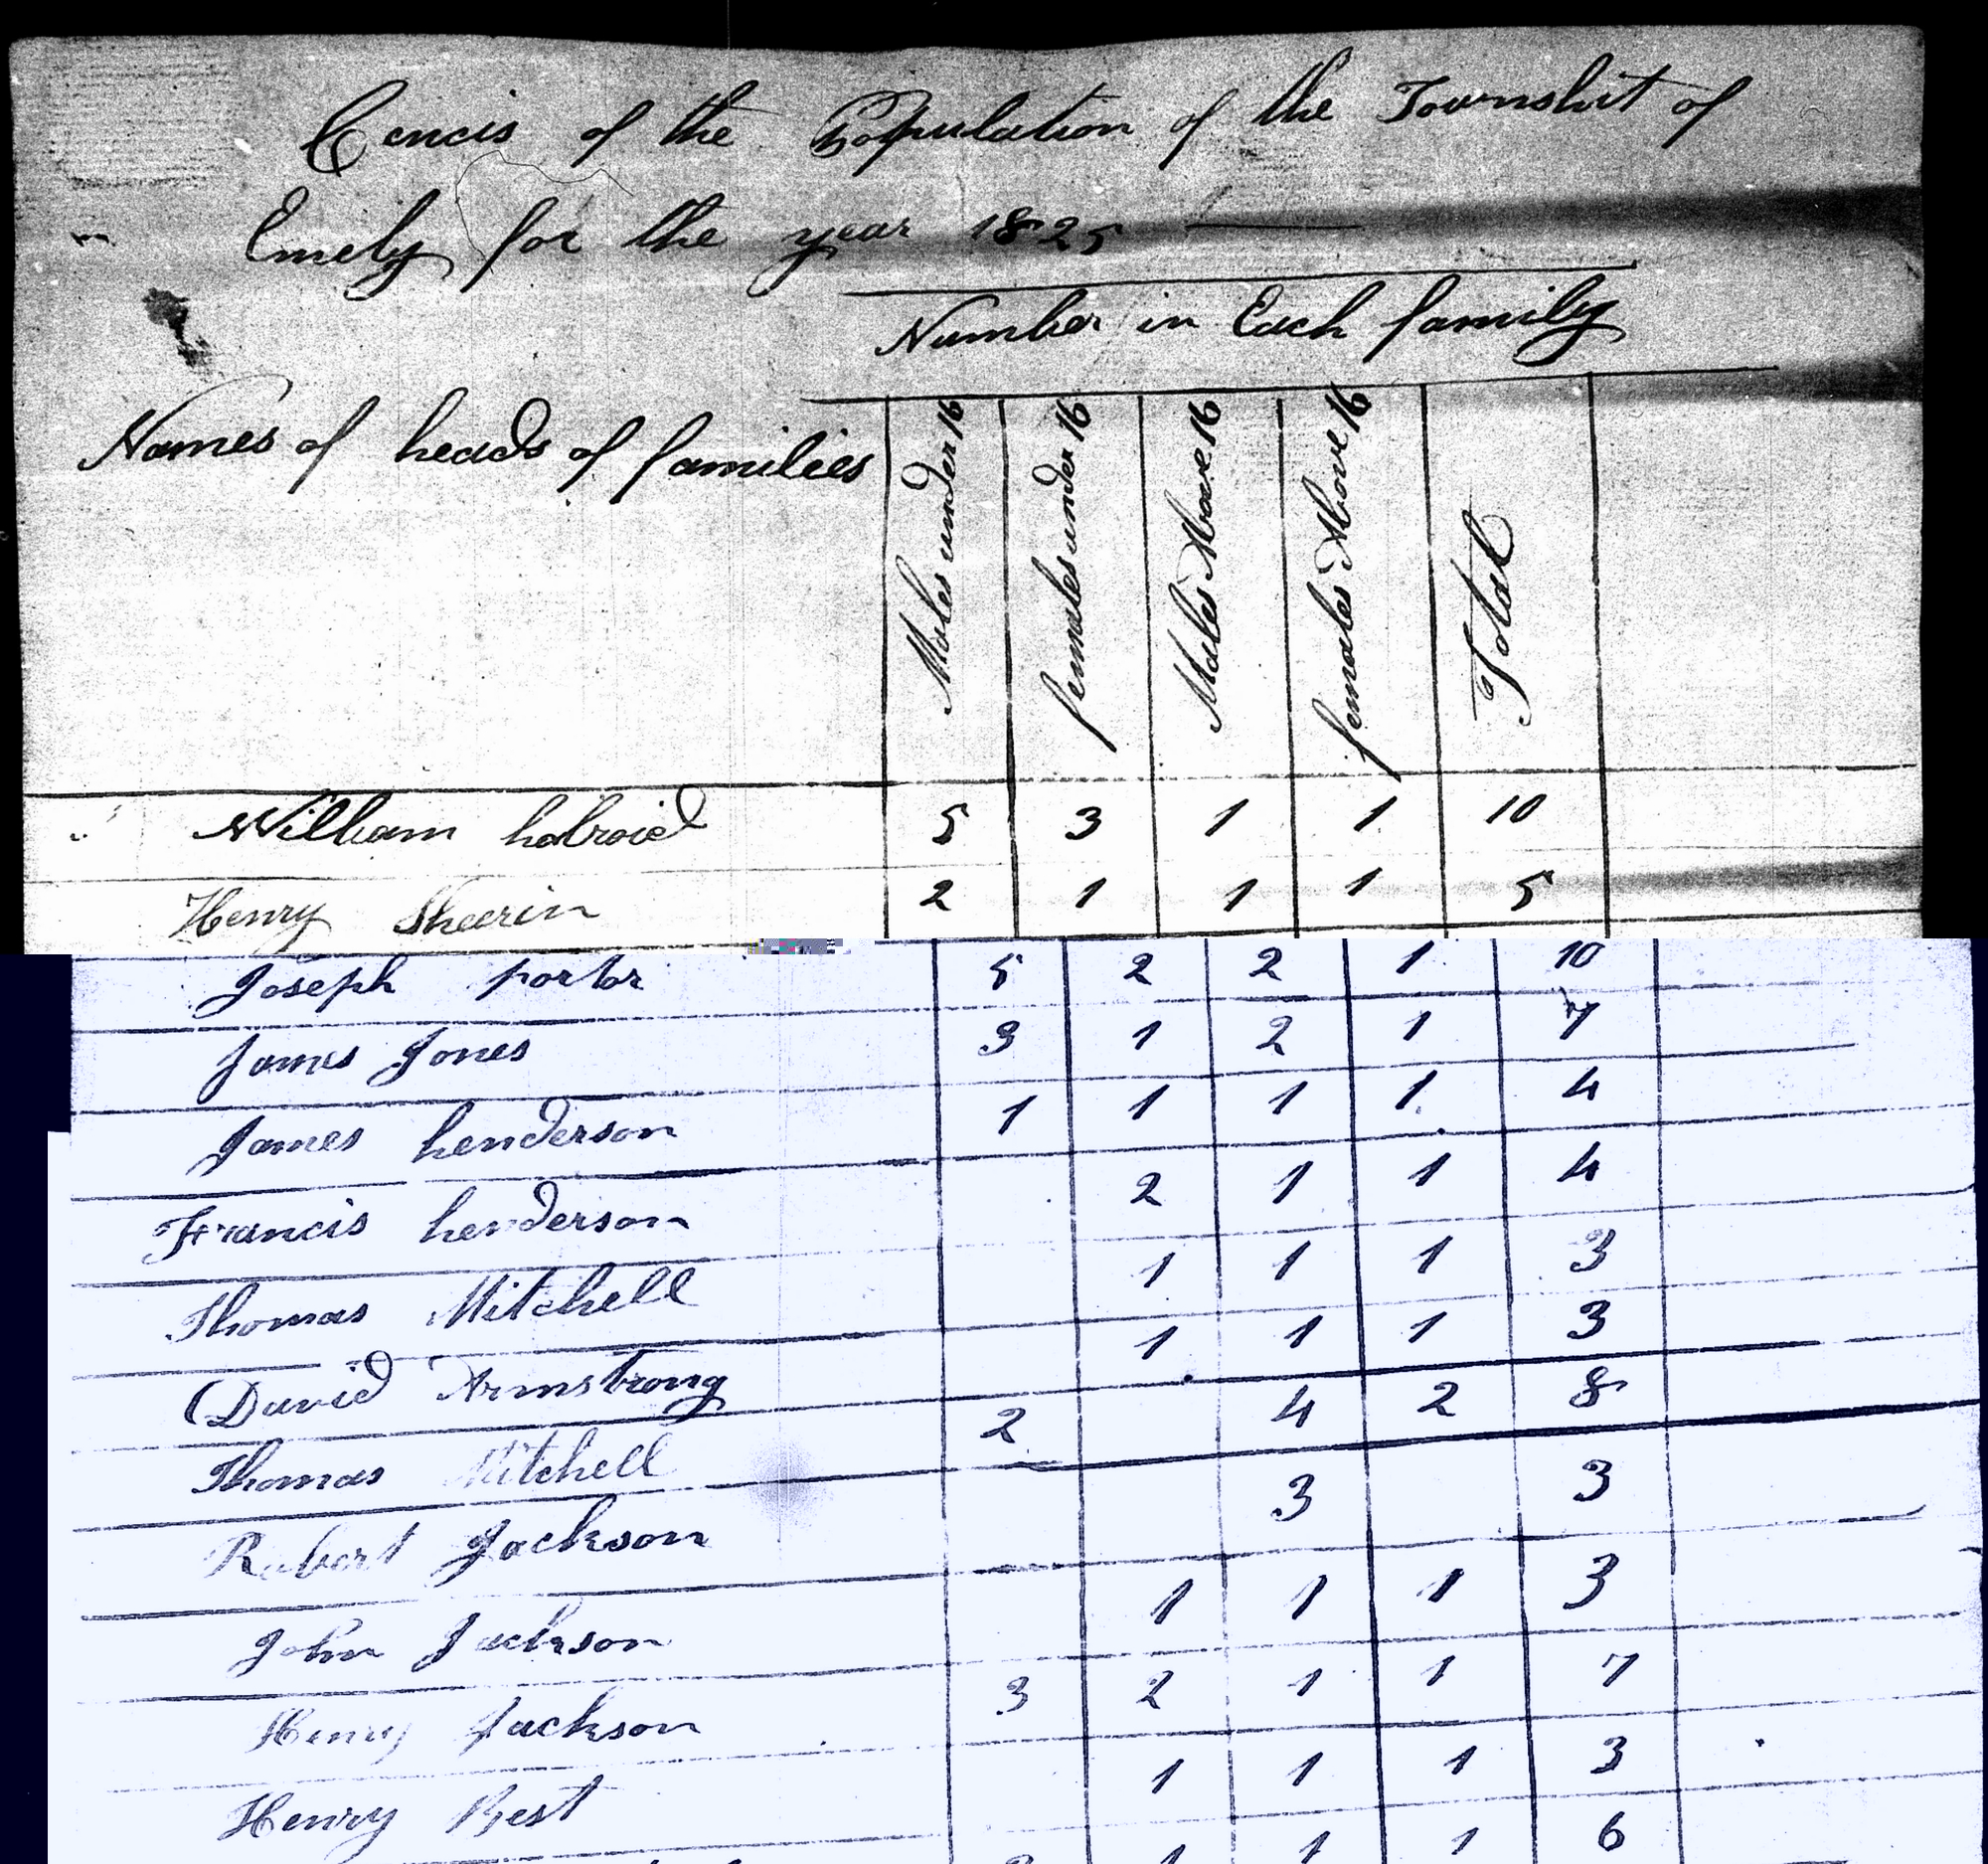 Cencis of the Population of the Townshit of
Emely for the year 1825
Number in Each family
Names of heads of families Males under 16 females under 16 Males Above 16 females Above 16 Total
William holroid 5 3 1 1 10
Henry Sheerin 2 1 1 1 5
Joseph portor 5 2 2 1 10
James Jones 3 1 2 1 7
James henderson 1 1 1 1 4
Francis henderson 2 1 1 4
Thomas Mitchell 1 1 1 3
David Armstrong 1 1 1 3
Thomas Mitchell 2 4 2 8
Robert Jackson 3 3
John Jackson 1 1 1 3
Henry Jackson 3 2 1 1 7
Henry Best 1 1 1 3
1 1 1 6